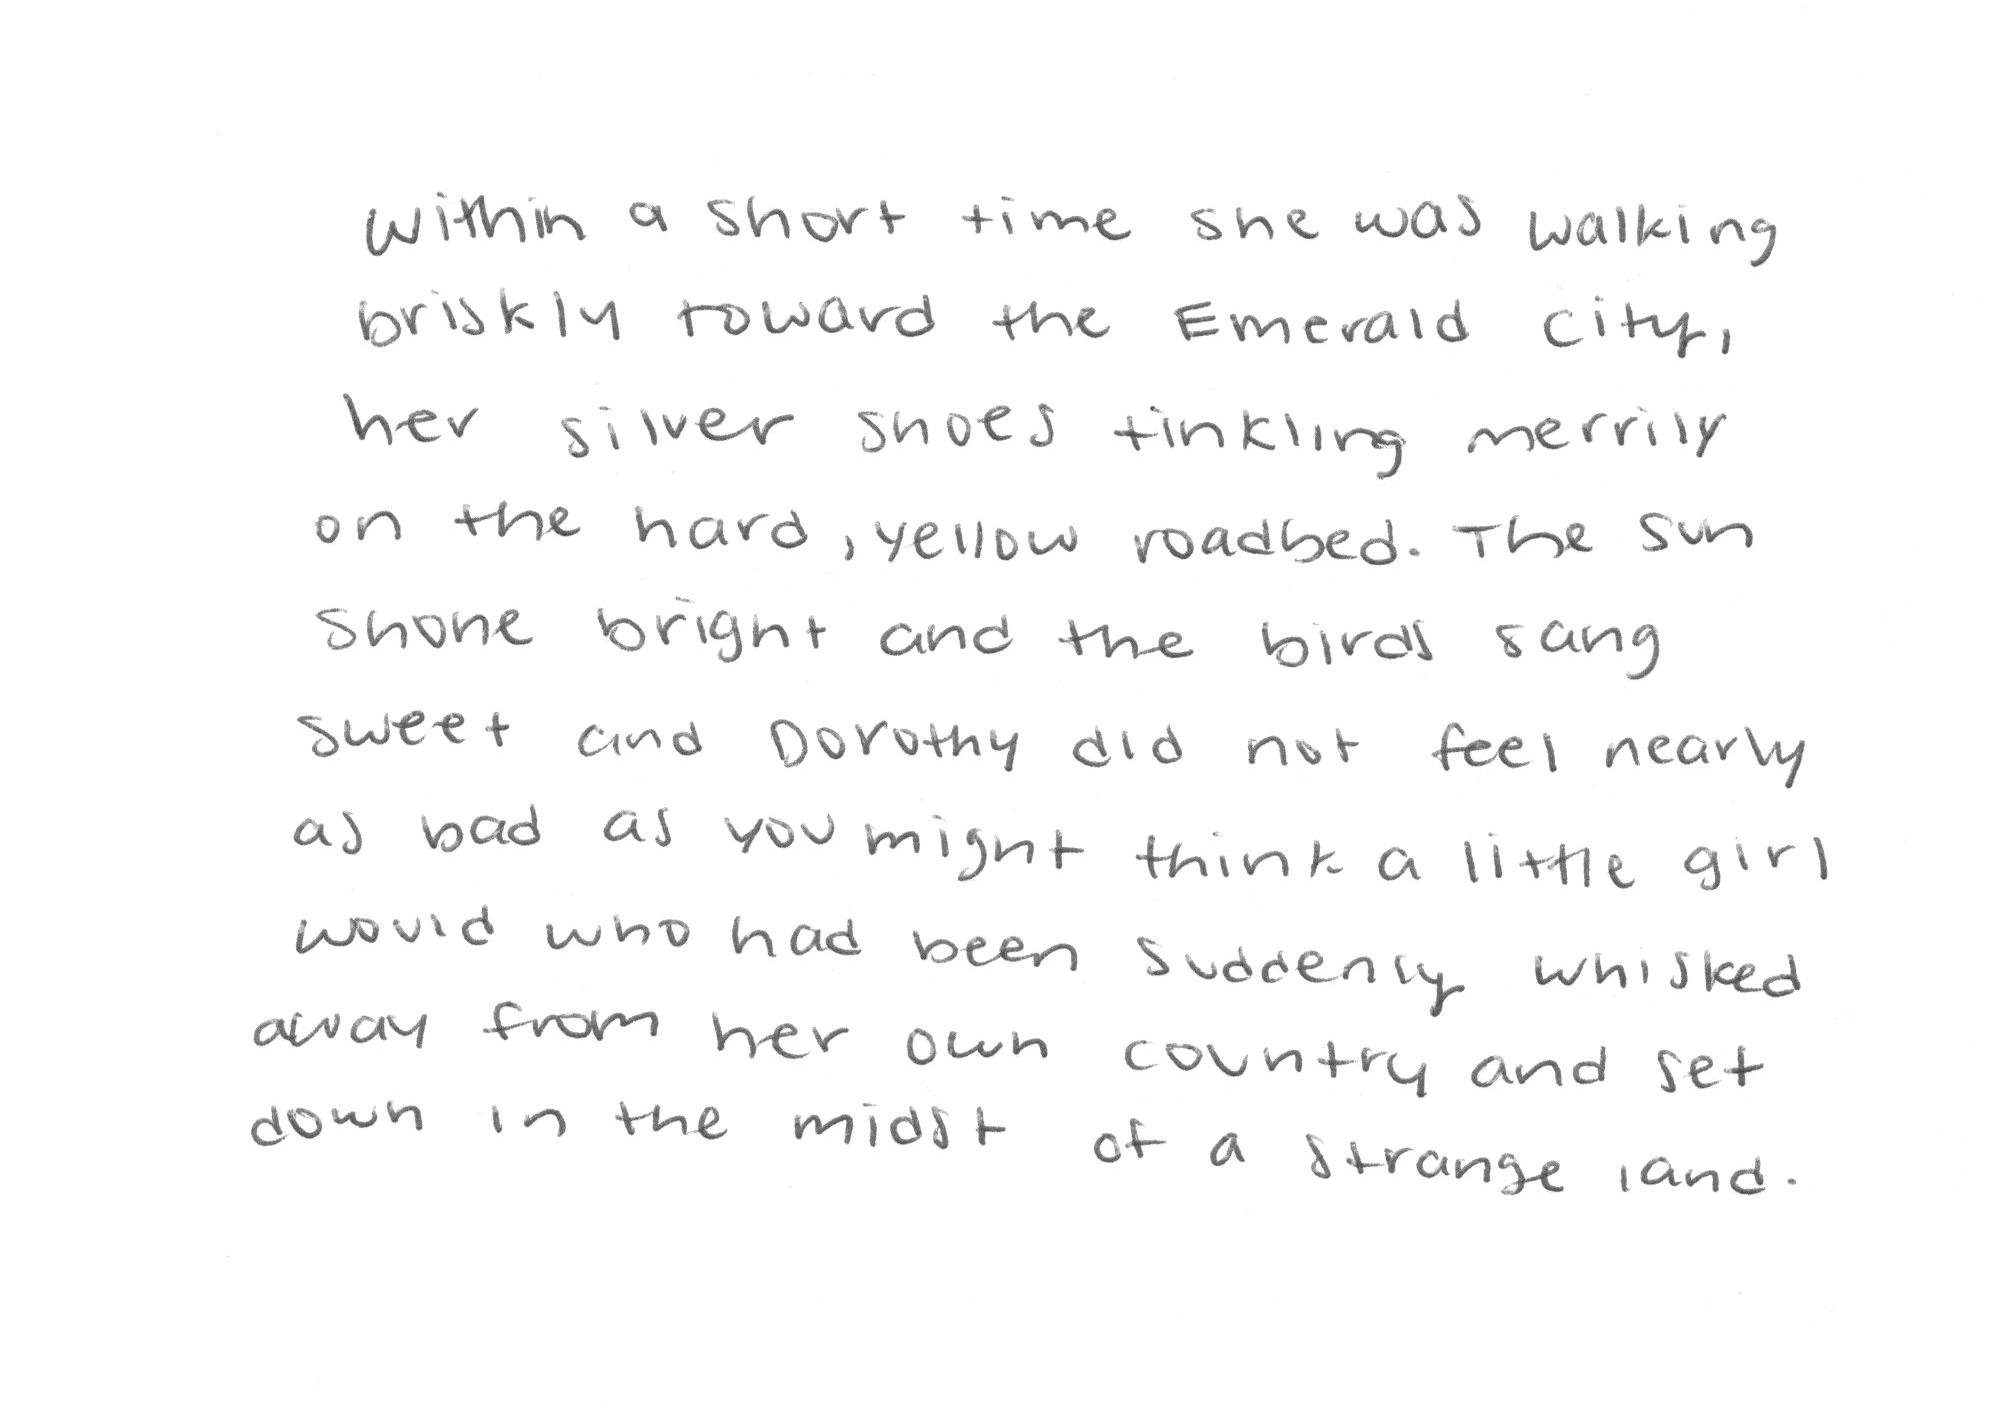 Within a short time she was walking
briskly toward the Emerald City,
her silver shoes tinkling merrily
on the hard, yellow roadbed. The sun
shone bright and the birds sang
sweet and Dorothy did not feel nearly
as bad as you might think a little girl
would who had been suddenly whisked
away from her own country and set
down in the midst of a strange land.